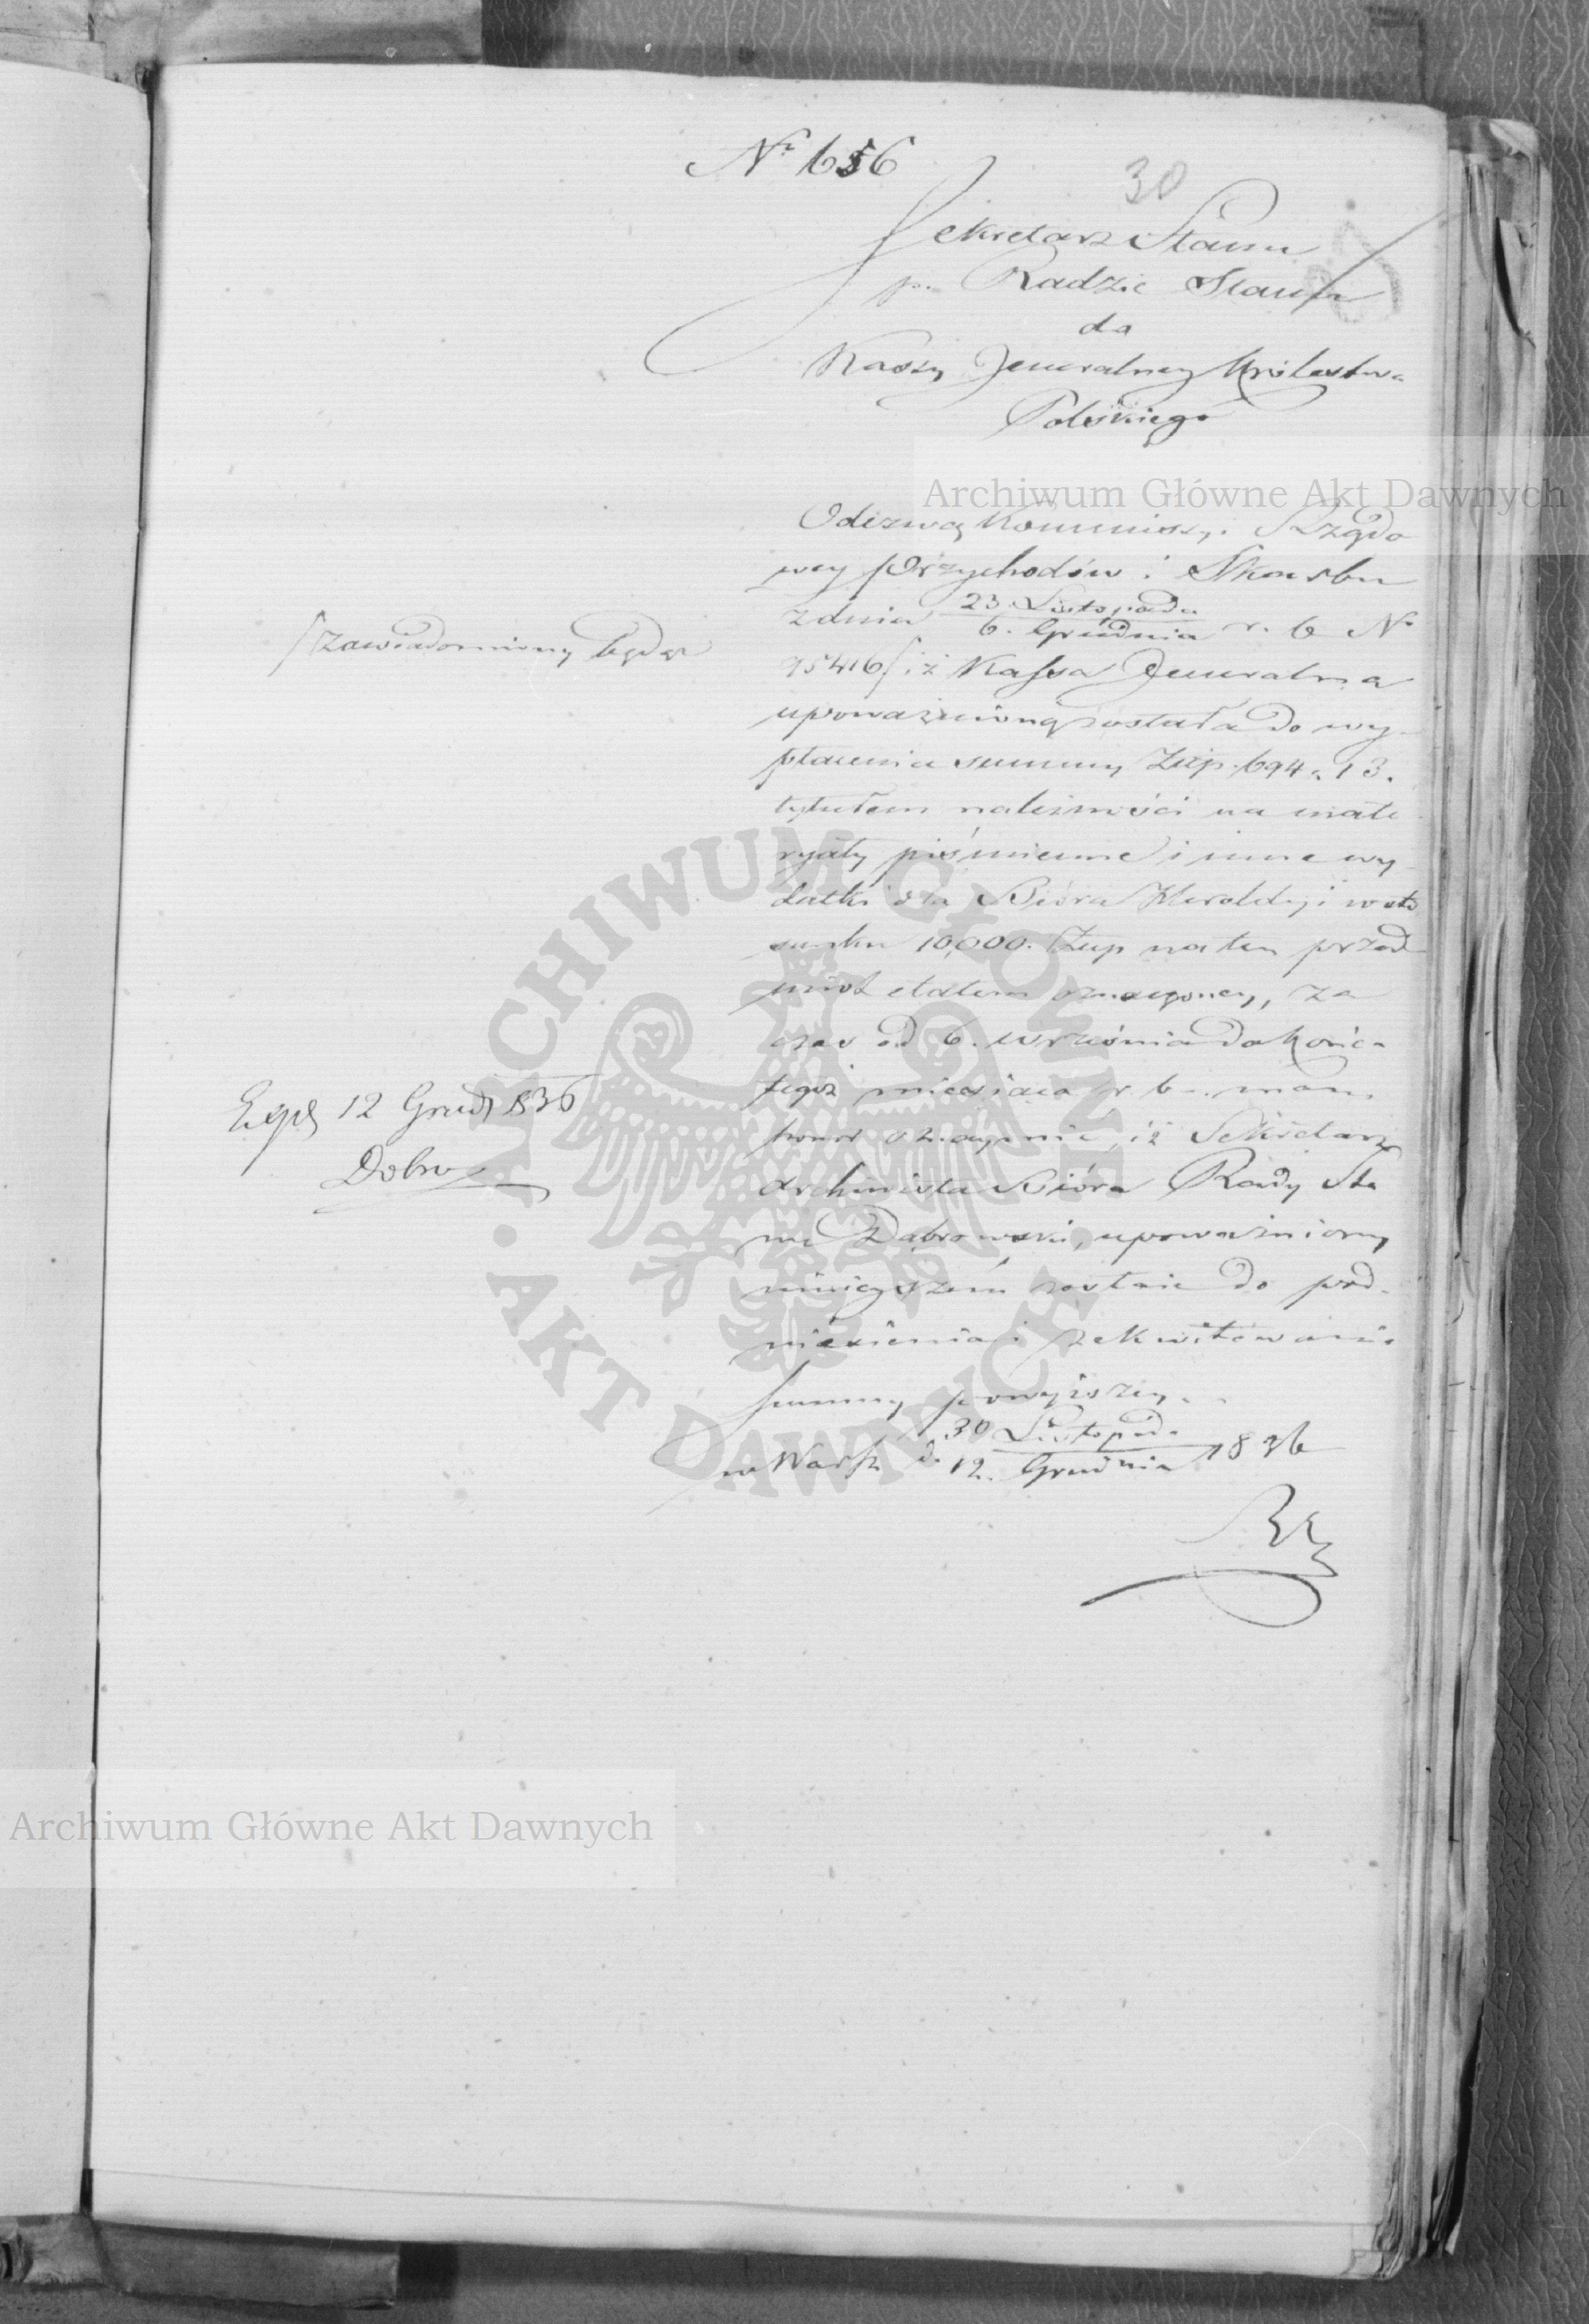 Nr 656
30
Sekretarz Stanu
p. Radzie Stanu
do
Kassy Jeneralney Królestwa
Polskiego
Archiwum Główne Akt Dawnych
Odezwą Kommissyi Rządo
wey Przychodów i Skarbu
z dnia 23 Listopada / 6. Grudnia r. b. No
zawiadomiony będąc
95416 iż Kassa Jeneralna
upoważnioną została do wy-
płacenia summy Złp. 694. 13.
tytułem należności na mate
ryały piśmienne i inne wy
datki dla Bióra Heroldyi w sto
sunku 10,000. Złp na ten przed
miot etatem oznaczoney, za
czas od 6. września do końca
tegoż miesiąca r. b. mam
honor oznaymić, iż Sekretarz
Archiwista Bióra Rady Sta
nu Dąbrowski, upoważniony
ninieyszem zostaie do pod-
niesienia i zakwitowania
summy powyższey.
Exped 12 Grud 836
Dobro
w Warsz d. 30 Listopada / 12. Grudnia 1836
ARCHIWUM GŁÓWNE
AKT DAWNYCH
Archiwum Główne Akt Dawnych